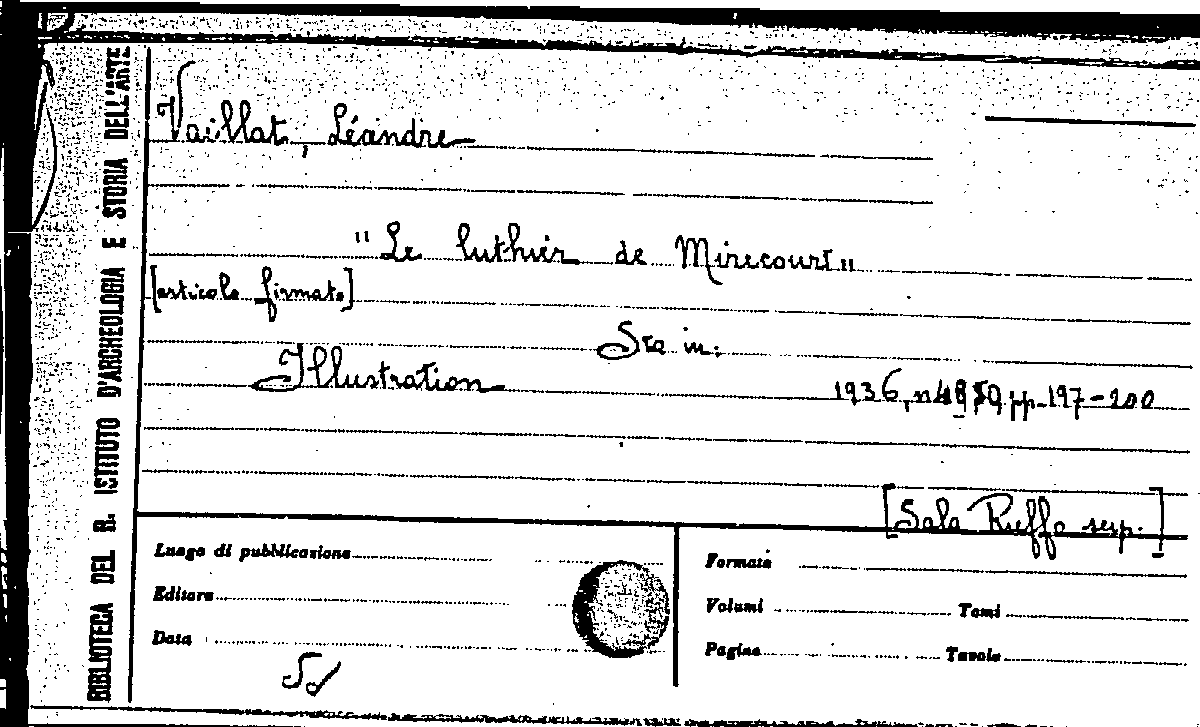 BIBLIOTECA DEL R. ISTITUTO D'ARCHEOLOGIA E STORIA DELL'ARTE
Vaillat, Léandre
"Le luthier de Mirecourt"
[articolo firmato]
Sta in:
Illustration
1936, pp. 197-200
[Sala Ruffo serp.]
Luogo di pubblicazione
Editore
Data
Formato
Volumi Tomi
Pagine Tavole